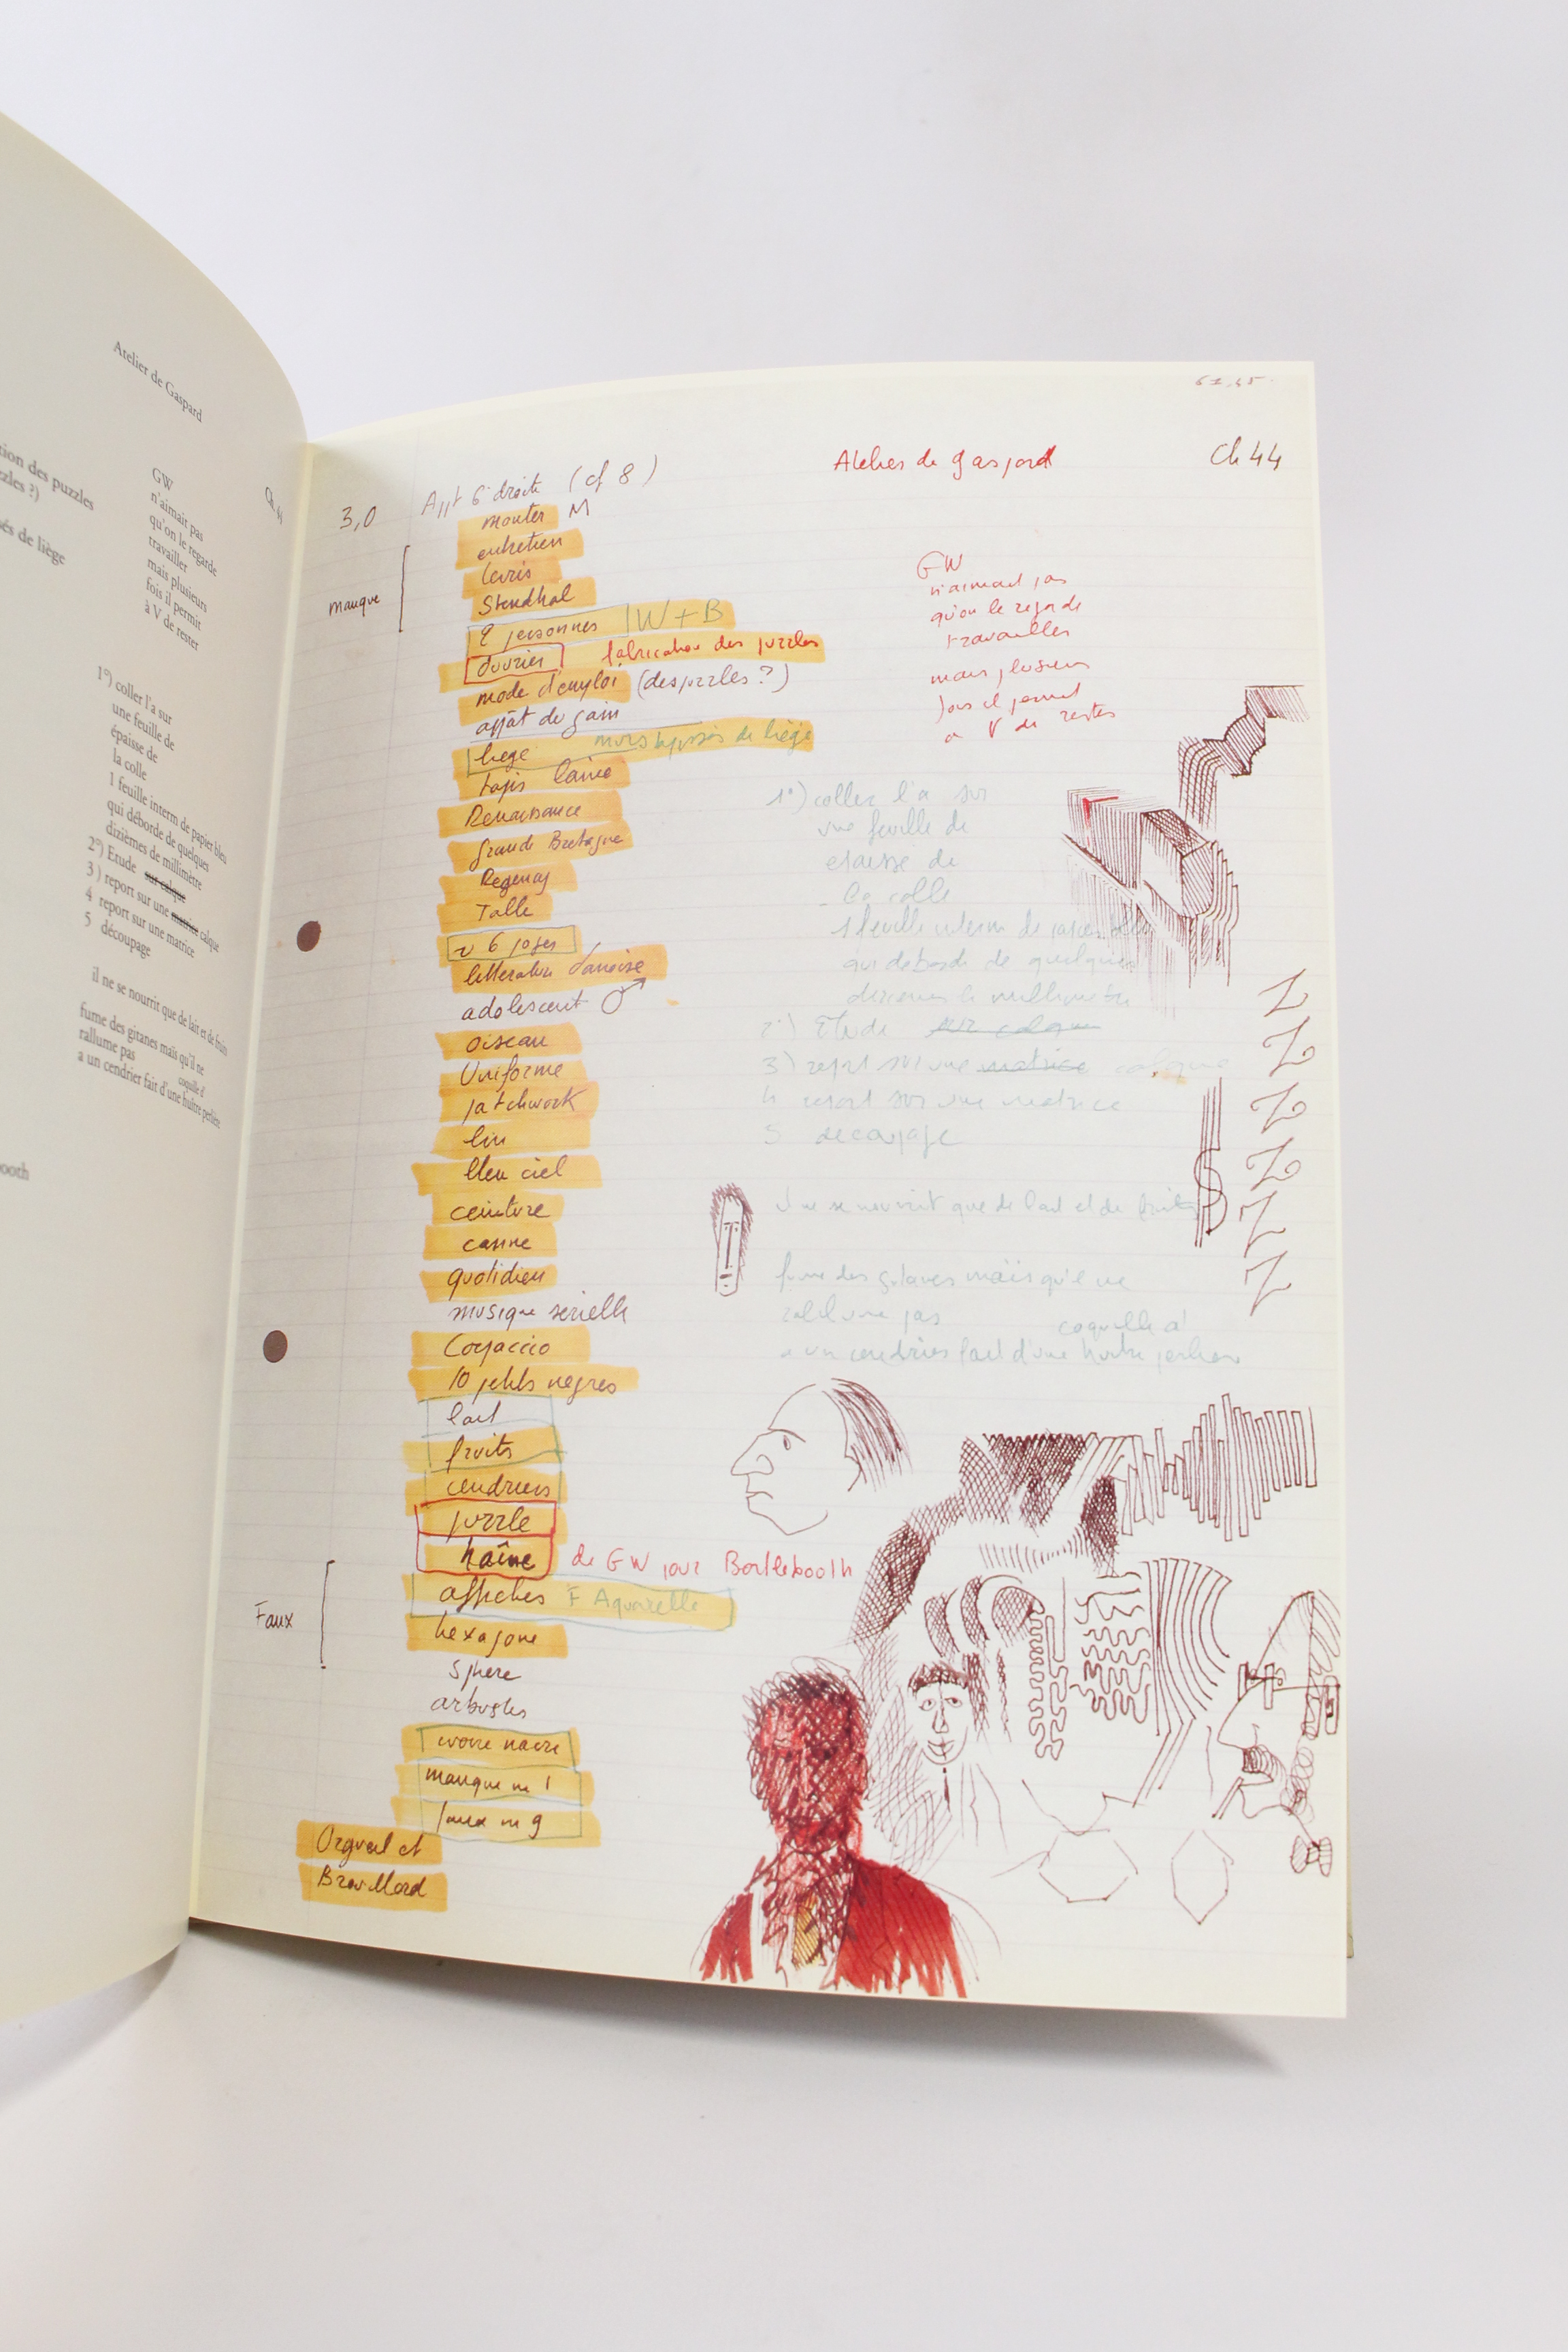 Atelier de Gaspard
tion des puzzles
zzles ?)
sés de liège
Ch. 44
GW
n'aimait pas
qu'on le regarde
travailler
mais plusieurs
fois il permit
à V de rester
1°) coller l'a sur
une feuille de
épaisse de
la colle
1 feuille interm de papier bleu
qui déborde de quelques
dizièmes de millimètre
2°) Etude sur calque
3) report sur une matrice calque
4 report sur une matrice
5 découpage
il ne se nourrit que de lait et de fruits
fume des gitanes maïs qu'il ne
rallume pas
coquille d'
a un cendrier fait d'une huître perlière
ooth
61.65
3,0
Appt 6 droite (cf 8)
Atelier de Gaspard
Ch 44
monter M
entretien
manque
Leiris
Stendhal
2 personnes W+B
ouvrier fabrication des puzzles
mode d'emploi (des puzzles ?)
appât du gain
liège murs tapissés de liège
tapis laine
Renaissance
Grande Bretagne
Regency
Table
6 pages
littérature danoise
adolescent ♂
oiseau
Uniforme
patchwork
lin
bleu ciel
ceinture
canne
quotidien
musique serielle
Carpaccio
10 petits negres
lait
fruits
cendriers
puzzle
haîne de GW pour Bartlebooth
affiches F Aquarelle
Faux
hexagone
sphere
arbustes
ivoire nacre
manque in 1
faux in 9
Orgueil et
Brouillard
GW
n'aimait pas
qu'on le regarde
travailler
mais plusieurs
fois il permit
a V de rester
1°) coller l'a sur
une feuille de
epaisse de
la colle
1 feuille interm de papier bleu
qui deborde de quelques
dixiemes de millimetre
2°) Etude sur calque
3) report sur une matrice calque
4 report sur une matrice
5 decoupage
il ne se nourrit que de lait et de fruits
fume des gitanes maïs qu'il ne
rallume pas
coquille d'
a un cendrier fait d'une huitre perliere
Z
Z
Z
Z
Z
Z
$